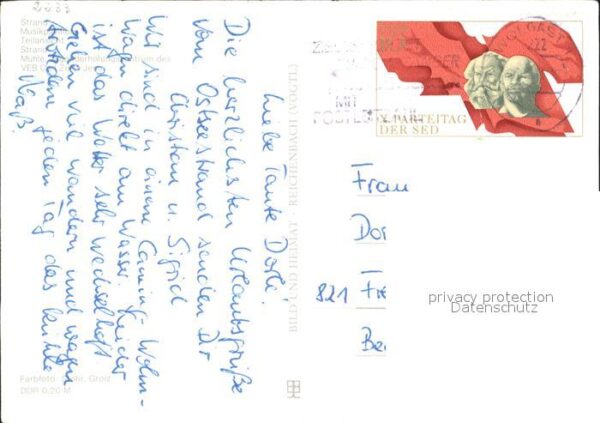 2283
Strand
Musikp
Teilans
Strand
VEB
Farbfoto:
Greiz
DDR 0,20 M
Liebe Tante Dorli!
Die herzlichsten Urlaubsgrüße
vom Ostseestrand senden Dir
Christian u. Sigrid
Wir sind in einem Camping-Wohn-
wagen direkt am Wasser. Leider
ist das Wetter sehr wechselhaft
Gehen viel wandern und wagen
trotzdem jeden Tag das kühle
Naß.
BILD UND HEIMAT · REICHENBACH (VOGTL)
WOLGAST
MIT
X. PARTEITAG
DER SED
Frau
Dor
821 Fre
Be
privacy protection
Datenschutz